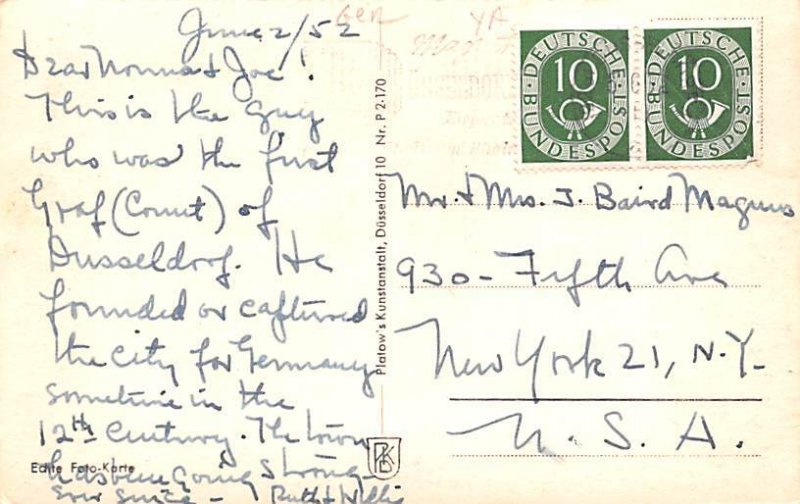 June 2/52
Dear Norma & Joe!
This is the guy
who was the first
Graf (Count) of
Dusseldorf. He
founded or captured
the city for Germany
sometime in the
12th Century. The town
has been going strong
ever since - Ruth & Willis
Echte Foto-Karte
Platow's Kunstanstalt, Düsseldorf 10 Nr. P 2-170
PKD
Ger
YA
DEUTSCHE BUNDESPOST
10
DEUTSCHE BUNDESPOST
10
Mr. & Mrs. J. Baird Magnus
930 - Fifth Ave
New York 21, N.Y.
U.S.A.